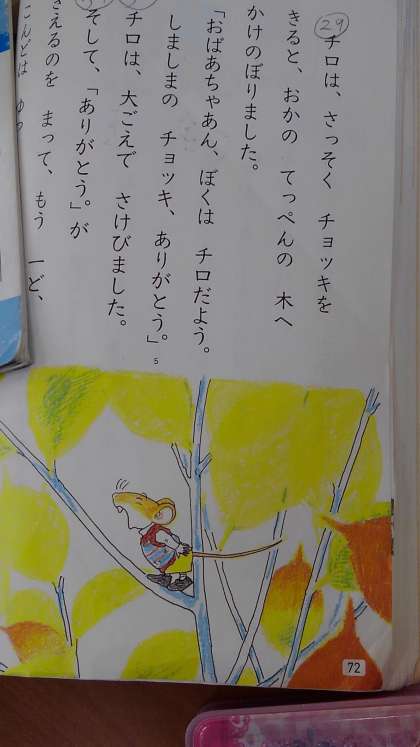 29
チロは、さっそく チョッキを
きると、おかの てっぺんの 木へ
かけのぼりました。
「おばあちゃあん、ぼくは チロだよう。
しましまの チョッキ、ありがとう。」
5
チロは、大ごえで さけびました。
そして、「ありがとう。」が
きえるのを まって、もう 一ど、
こんどは
72